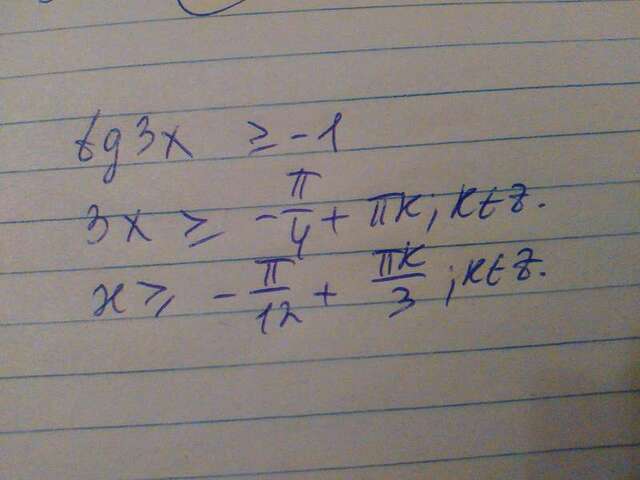 tg3x ≥ -1
3x ≥ -π/4 + πk, k∈z.
x ≥ -π/12 + πk/3; k∈z.